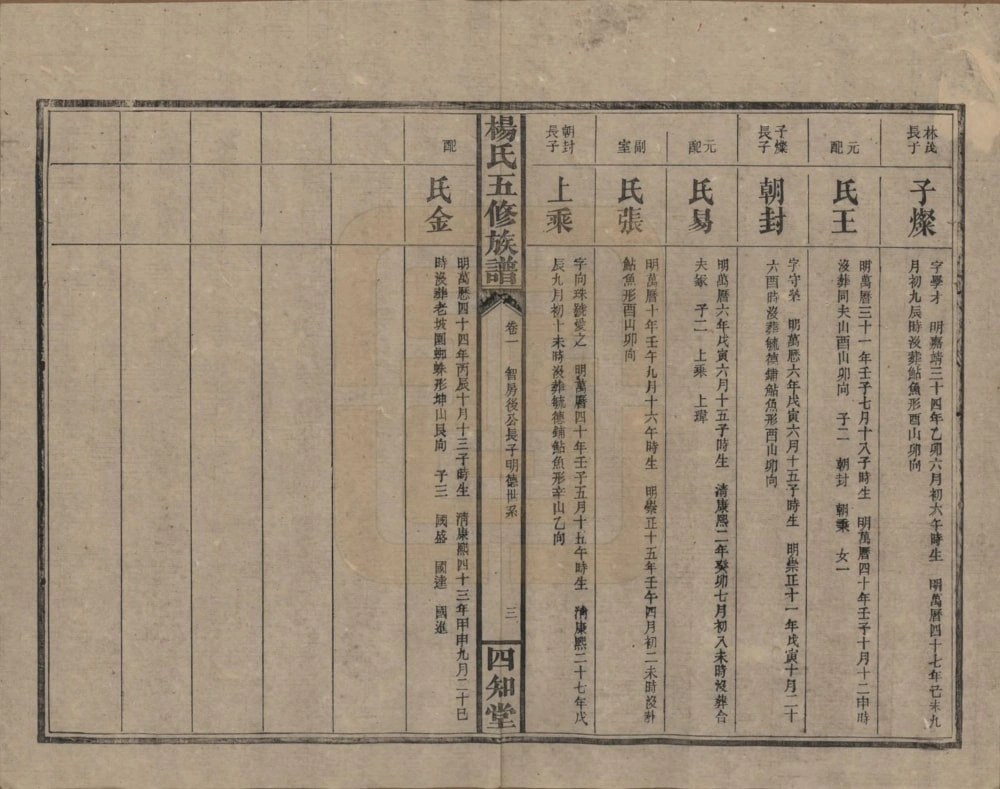 林茂
長子
子燦
字學才　明嘉靖三十四年乙卯六月初六午時生　明萬曆四十七年己未九
月初九辰時沒葬鮎魚形酉山卯向
元配
氏王
明萬曆三十一年壬子七月十八子時生　明萬曆四十年壬子十月十二申時
沒葬同夫山酉山卯向　子二　朝封　朝乘　女一
子燦
長子
朝封
字守榮　明萬曆六年戊寅六月十五子時生　明崇正十一年戊寅十月二十
六酉時沒葬毓德鋪鮎魚形酉山卯向
元配
氏易
明萬曆六年戊寅六月十五子時生　清康熙二年癸卯七月初八未時沒葬合
夫冢　子二　上乘　上瑋
副室
氏張
明萬曆十年壬午九月十六午時生　明崇正十五年壬午四月初二未時沒葬
鮎魚形酉山卯向
朝封
長子
上乘
字向珠號愛之　明萬曆四十年壬子五月十五午時生　清康熙二十七年戊
辰九月初十未時沒葬毓德鋪鮎魚形辛山乙向
楊氏五修族譜
卷一　智房後公長子明德世系　三
四知堂
配
氏金
明萬曆四十四年丙辰十月十三子時生　清康熙四十三年甲申九月二十巳
時沒葬老坡園蜘蛛形坤山艮向　子三　國盛　國達　國進